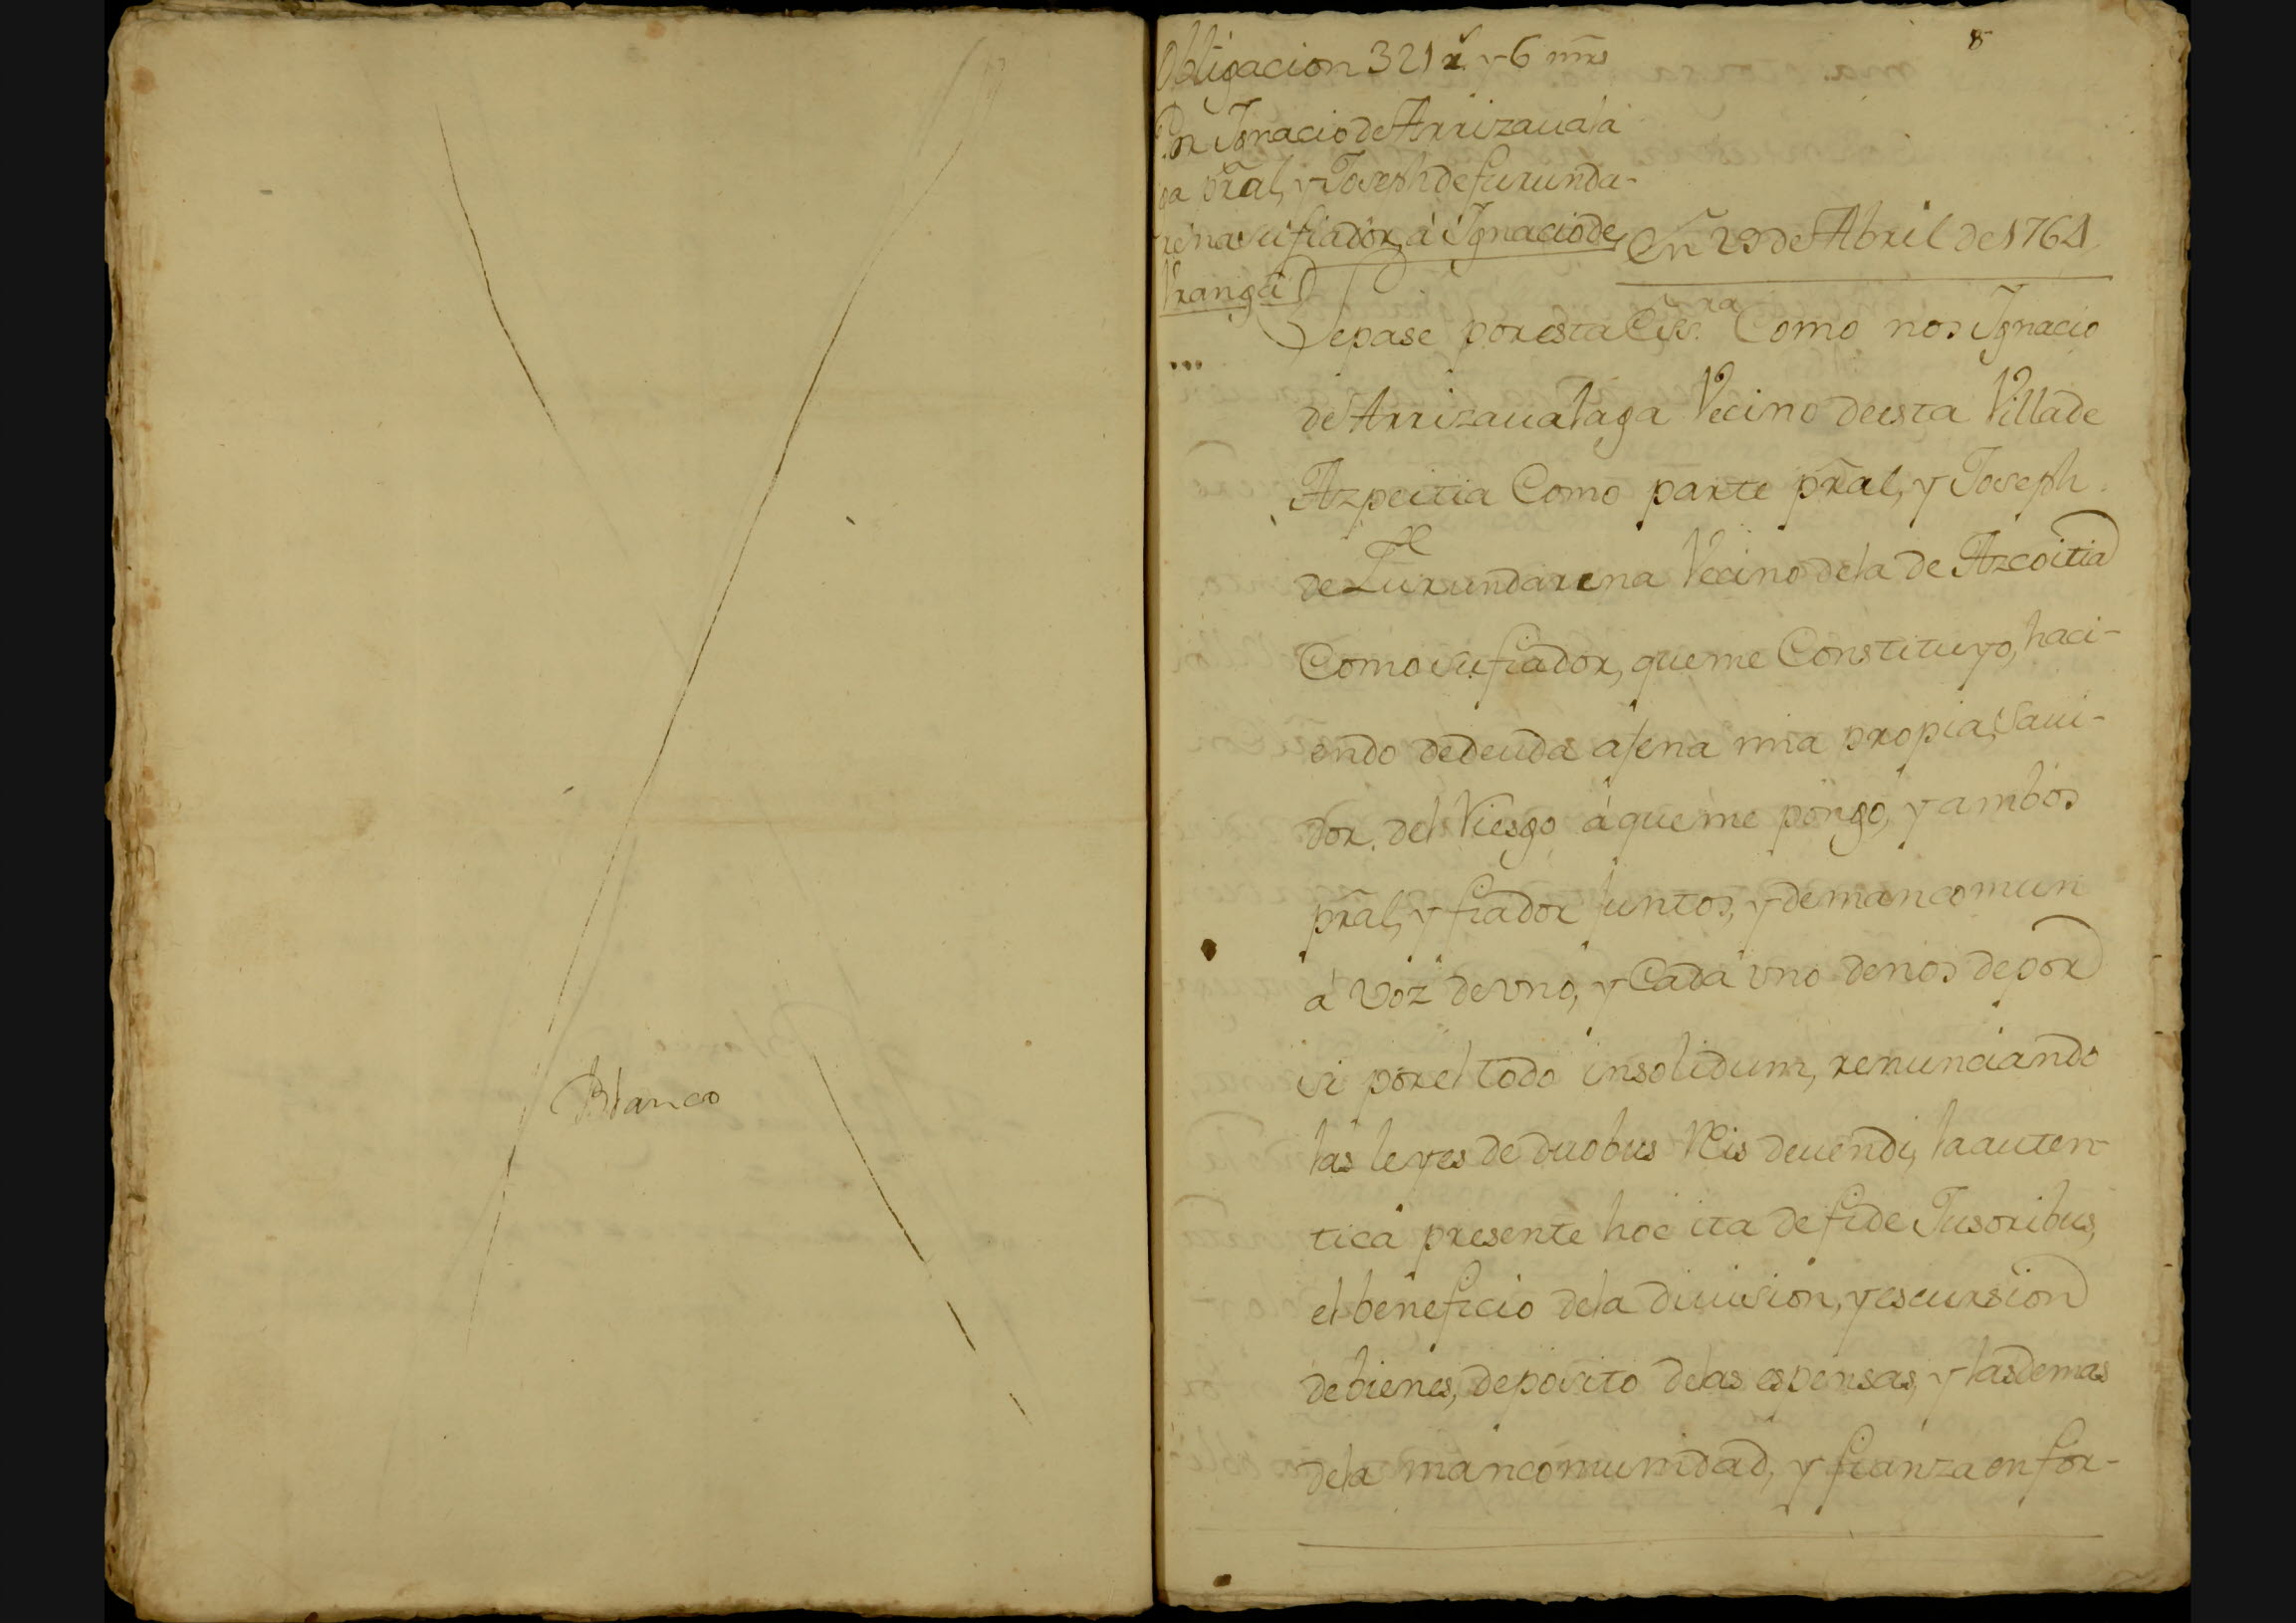 Blanco
8
Obligacion 321 rˢ y 6 mrs
Por Ignacio de Arrizaualá
ga pral, y Joseph de furunda-
rena su fiador, à Ignacio de
Vranga
En 29 de Abril de 1764
Sepase por esta Esc.ra Como nos Ignacio
de Arrizaualaga Vecino de esta Villa de
Azpeitia Como parte pral, y Joseph
de Lurundarena Vecino dela de Azcoitia
Como su fiador, que me Constituyo, haci-
endo de deuda ajena mia propia, Saui-
dor del Riesgo à que me pongo, y ambos
pral, y fiador juntos, y de mancomun
à voz de vno, y Cada vno de nos de por
si por el todo insolidum, renunciando
las leyes de duobus Reis deuendi, la auten-
tica presente hoc ita de fide Jusoribus,
el beneficio dela diuision, y escursion
de bienes, deposito delas espensas, y las demas
dela mancomunidad, y fianza en for-